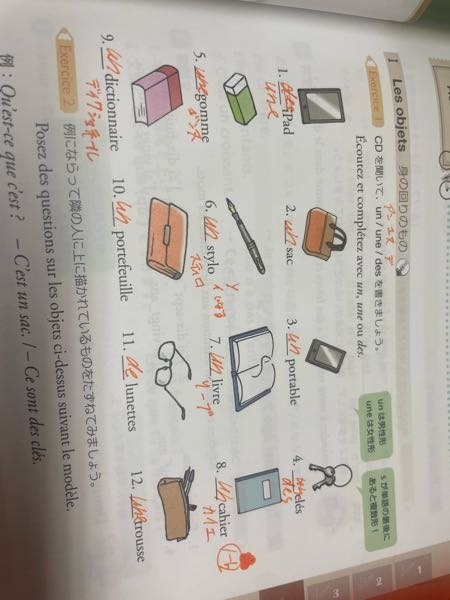 I Les objets 身の回りのもの
Exercice 1 CDを聞いて、un / une / des を書きましょう。
Écoutez et complétez avec un, une ou des.
unは男性形
uneは女性形
sが単語の最後に
あると複数形!
1. iPad
une
2. un sac
3. un portable
4. clés
des
5. une gomme
6. un stylo
7. un livre
8. un cahier
カイエ
9. un dictionnaire
10. un portefeuille
11. de lunettes
12. une trousse
Exercice 2 例にならって隣の人に上に描かれているものをたずねてみましょう。
Posez des questions sur les objets ci-dessus suivant le modèle.
例 : Qu'est-ce que c'est ? – C'est un sac. / – Ce sont des clés.
1
2
3